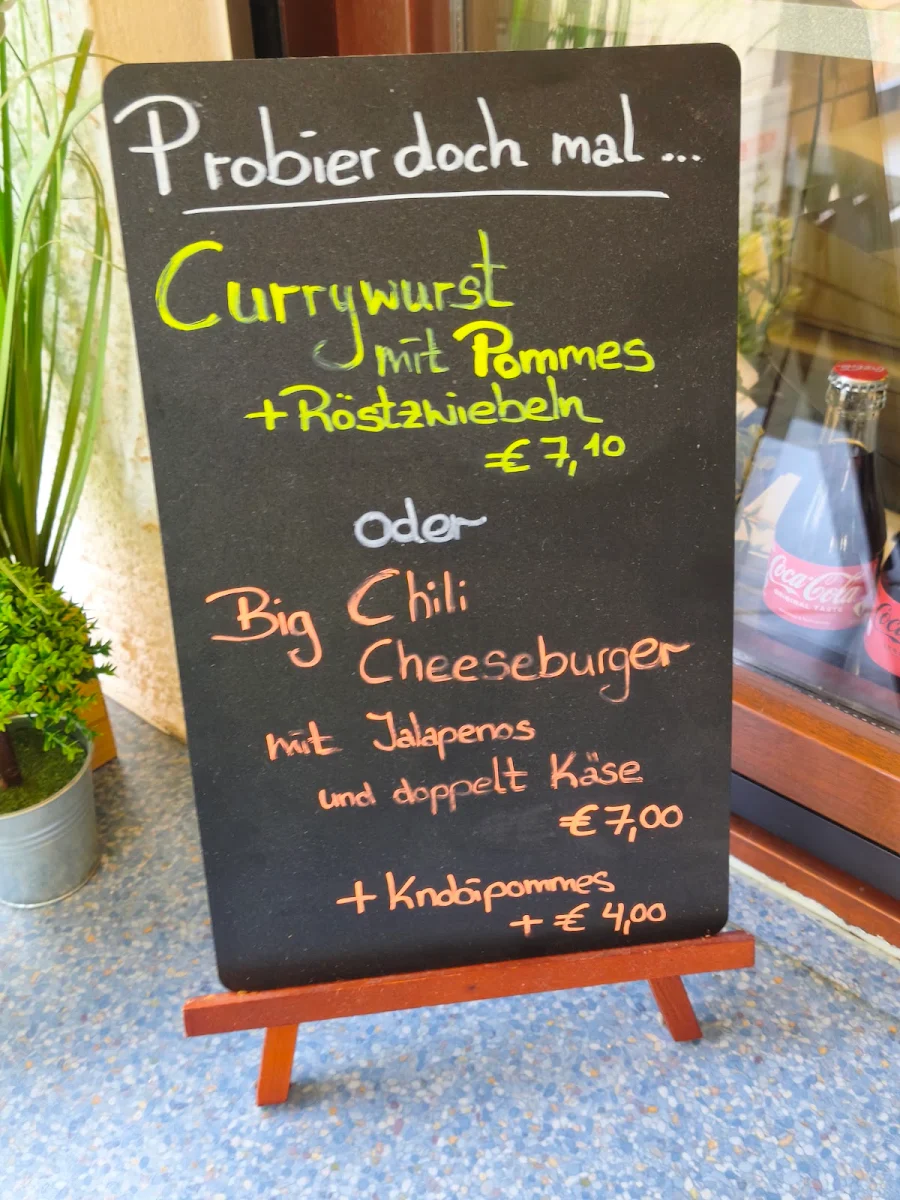 Probier doch mal ...
Currywurst
mit Pommes
+ Röstzwiebeln
€ 7,10
oder
Big Chili
Cheeseburger
mit Jalapenos
und doppelt Käse
€ 7,00
+ Knobipommes
+ € 4,00
Coca-Cola
ORIGINAL TASTE